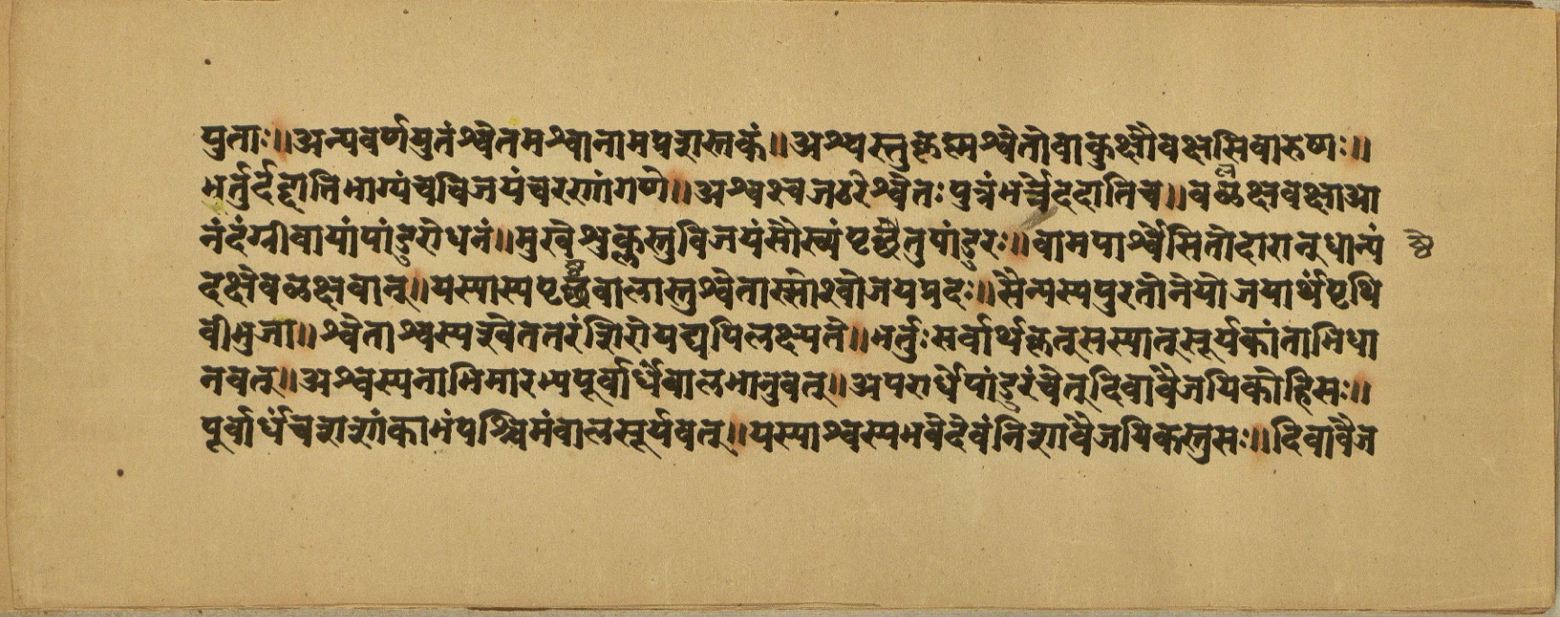 पुताः॥अन्यवर्णयुतंश्वेतमश्वानामप्रशस्तकं॥अश्वस्तुकृष्णश्वेतोवाकुक्षौवक्षसिवारुणः॥
भर्तुर्दहातिभाग्यंचविजयंचरणांगणे॥अश्वश्चजठरेश्वेतःपुत्रंभर्त्रेददातिच॥वळक्षवक्षाआ
नंदंग्रीवायांपांडुरोधनं॥मुखेशुक्लस्तुविजयंसौख्यंपृष्ठेतुपांडुरः॥वामपार्श्वेसितोदारान्धान्यं
दक्षेवळक्षवान्॥यस्यास्यपृष्ठवालास्तुश्वेतास्सोश्वोजयप्रदः॥सैन्यस्यपुरतोनेयोजयार्थंपृथि
वीभुजा॥श्वेताश्वस्यश्वेततरंशिरोयद्यपिलक्ष्यते॥भर्तुःसर्वार्थकृतूसस्यात्सूर्यकांताभिधा
नवत्॥अश्वस्यनाभिमारभ्यपूर्वार्धंबालभानुवत्॥अपरार्धंपांडुरंचेत्दिवावैजयिकोहिसः॥
पूर्वार्धंचशशांकाभंपश्चिमंबालसूर्यवत्॥यस्याश्वस्यभवेदेवंनिशावैजयिकस्तुसः॥दिवावैज